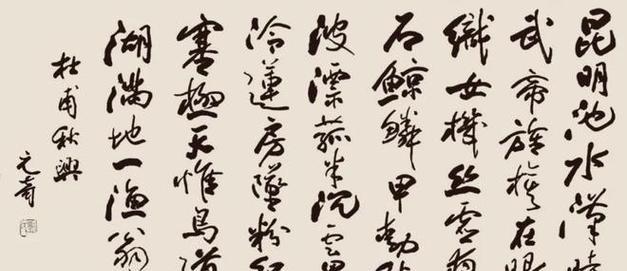 昆明池水漢時
武帝旌旗在眼
織女機絲虛夜
石鯨鱗甲動秋
波漂菰米沉雲黑
冷蓮房墜粉紅
塞極天惟鳥道
湖滿地一漁翁
杜甫秋興
元奇